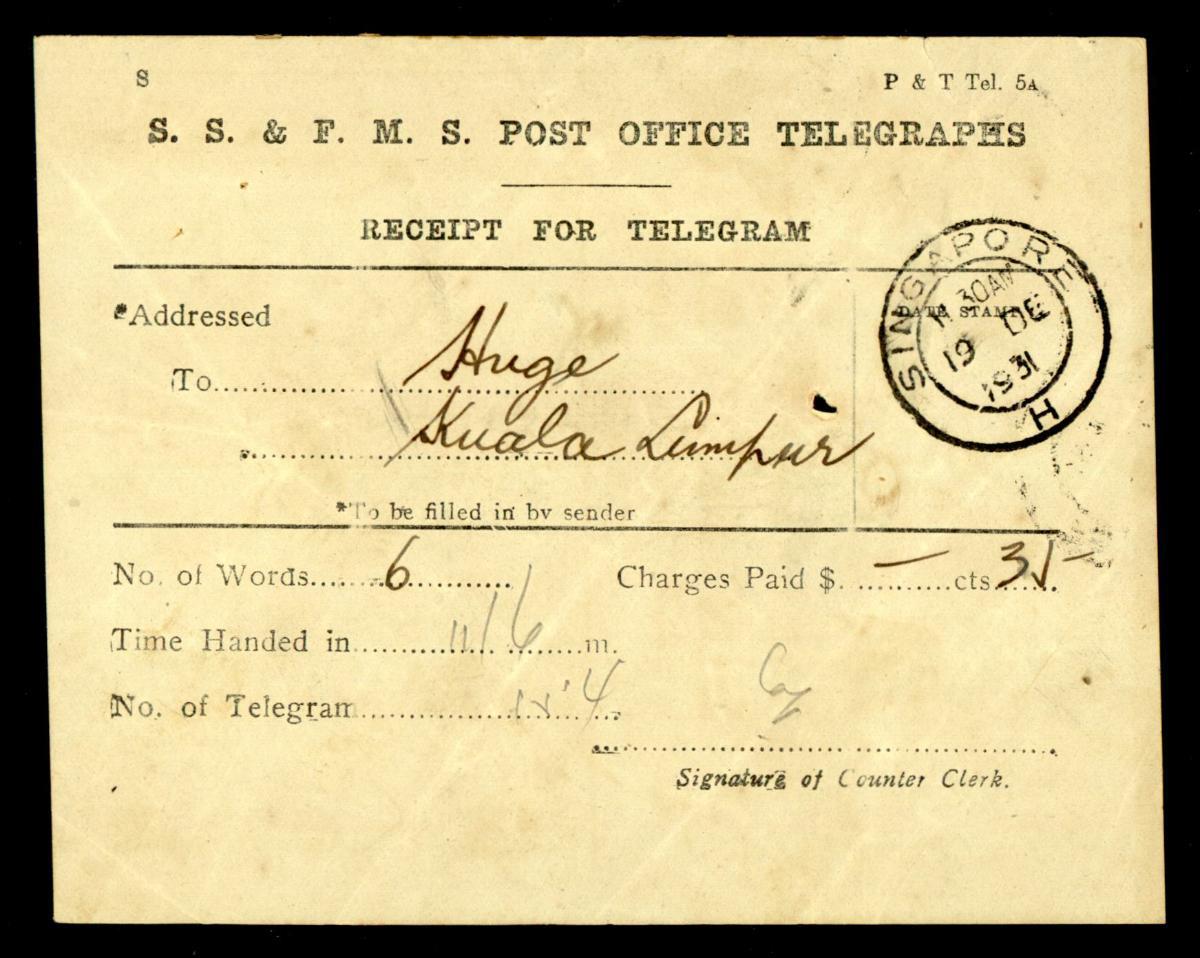 S
P & T Tel. 5A
S. S. & F. M. S. POST OFFICE TELEGRAPHS
RECEIPT FOR TELEGRAM
*Addressed
To Huge
Kuala Lumpur
*To be filled in by sender
DATE STAMP
SINGAPORE
11 30AM
19 DE
1931
H
No. of Words 6
Charges Paid $. — cts 35-
Time Handed in 11/6 m.
No. of Telegram
Signature of Counter Clerk.